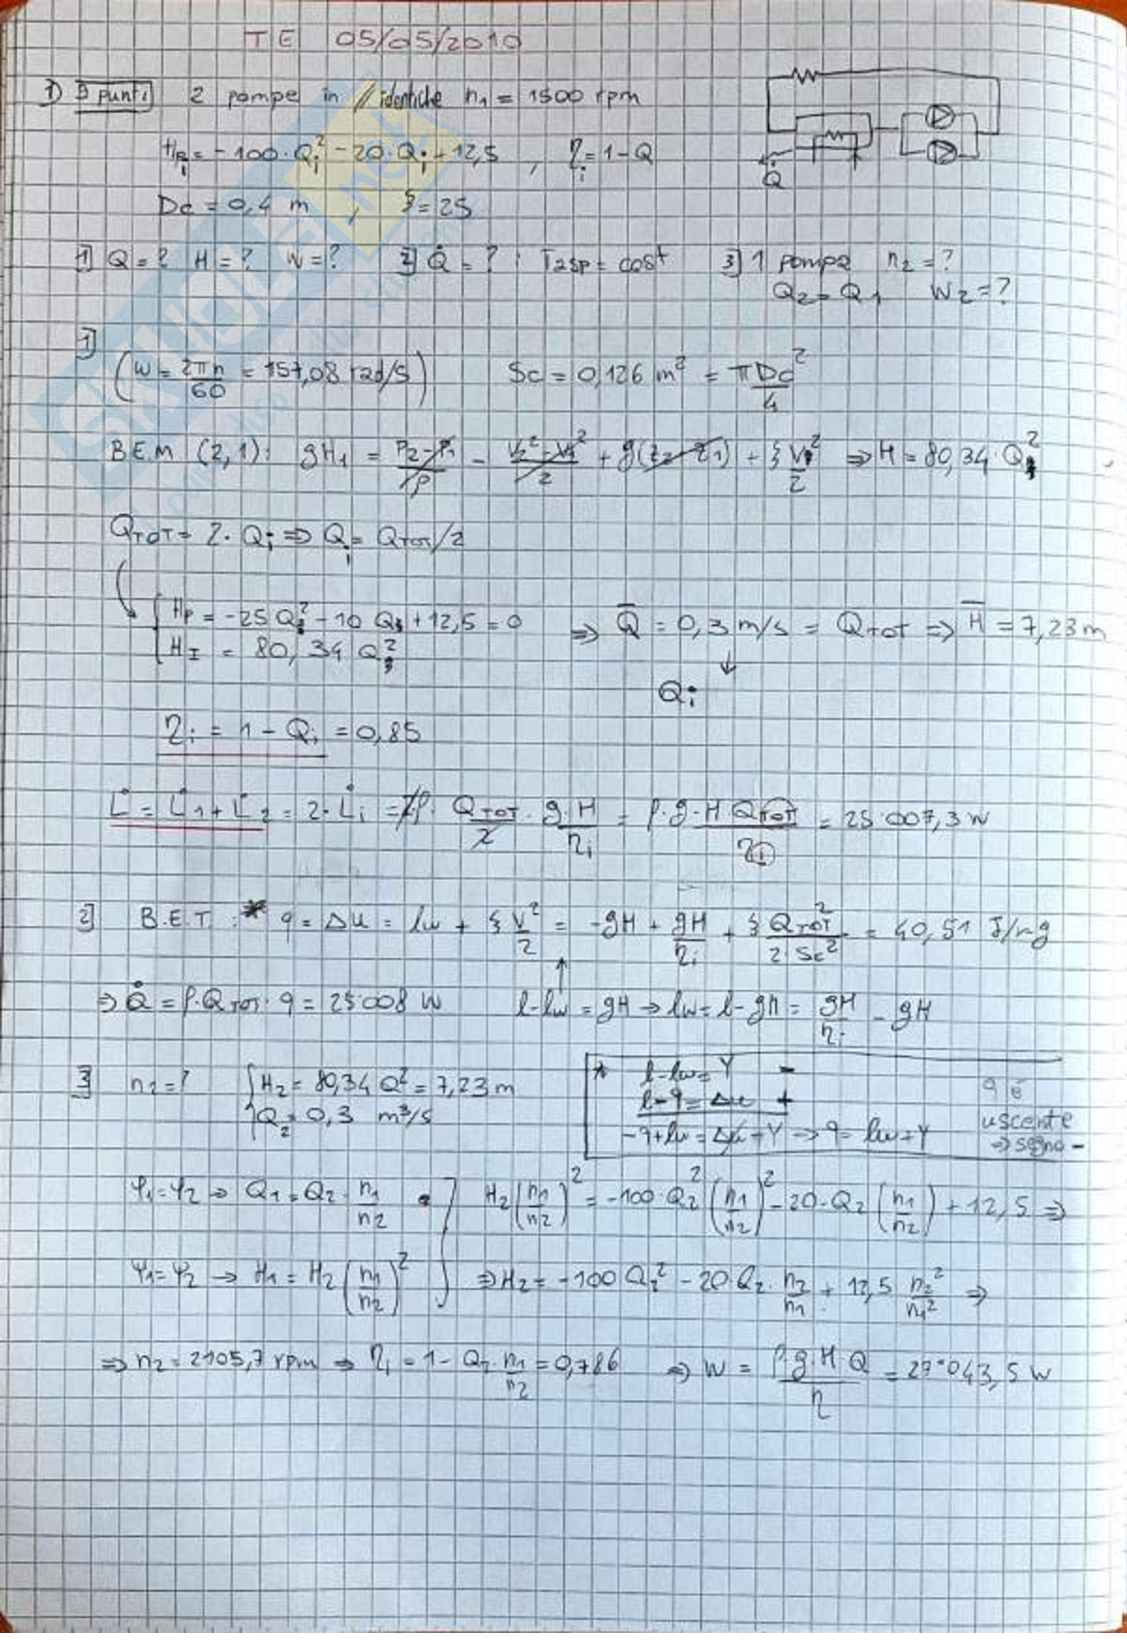 TE 05/05/2010
1) 3 punti 2 pompe in // identiche n1 = 1500 rpm
Hpi = -100·Qi² - 20·Qi + 12,5 , ηi = 1-Q
Q̇
Dc = 0,4 m , ξ = 25
1] Q = ? H = ? W = ? 2] Q̇ = ? : Tasp = cost 3] 1 pompa n2 = ?
Q2 = Q1 W2 = ?
1]
(ω = 2πn/60 = 157,08 rad/s) Sc = 0,126 m² = πDc²/4
B.E.M (2,1): gH1 = (P2-P1)/ρ - (V2²-V1²)/2 + g(z2-z1) + ξ V²/2 ⇒ H = 80,34·Q²
QTOT = 2·Qi ⇒ Qi = QTOT/2
Hp = -25 Q² - 10 Q + 12,5 = 0 ⇒ Q̄ = 0,3 m/s = QTOT ⇒ H̄ = 7,23 m
HI = 80,34 Q²
Qi
ηi = 1 - Qi = 0,85
L̇ = L̇1 + L̇2 = 2·L̇i = 2ρ· QTOT/2 · g·H/ηi = ρ·g·H QTOT/ηi = 25 007,3 W
2] B.E.T: * q = Δu = lw + ξ V²/2 = -gH + gH/ηi + ξ QTOT²/(2·Sc²) = 40,51 J/kg
⇒ Q̇ = ρ·QTOT·q = 25008 W l-lw = gH → lw = l-gH = gH/ηi - gH
3] n2 = ? H2 = 80,34 Q² = 7,23 m
Q2 = 0,3 m³/s
* l-lw = Y -
l-q = Δu +
-q+lw = Δu-Y → q = lw+Y
q è
uscente
⇒ segno -
φ1=φ2 → Q1 = Q2·n1/n2 H2(n1/n2)² = -100·Q2²(n1/n2)² - 20·Q2(n1/n2) + 12,5 ⇒
ψ1=ψ2 → H1 = H2(n1/n2)² ⇒ H2 = -100 Q2² - 20 Q2·n2/n1 + 12,5 n2²/n1² ⇒
⇒ n2 = 2105,7 rpm ⇒ ηi = 1 - Q2·n1/n2 = 0,786 ⇒ W = ρ·g·H Q/η = 27'043,5 W